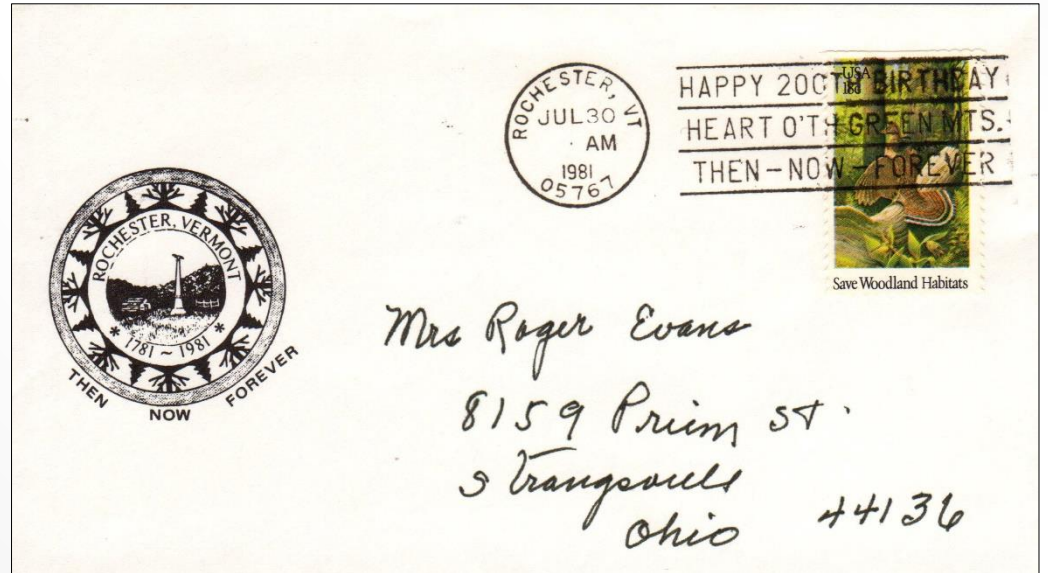 ROCHESTER, VT
JUL 30
AM
1981
05767
HAPPY 200TH BIRTHDAY
HEART O'TH GREEN MTS.
THEN-NOW FOREVER
USA
18c
Save Woodland Habitats
ROCHESTER, VERMONT
* 1781 ~ 1981 *
THEN NOW FOREVER
Mrs Roger Evans
8159 Priem St.
Strongsville
Ohio 44136